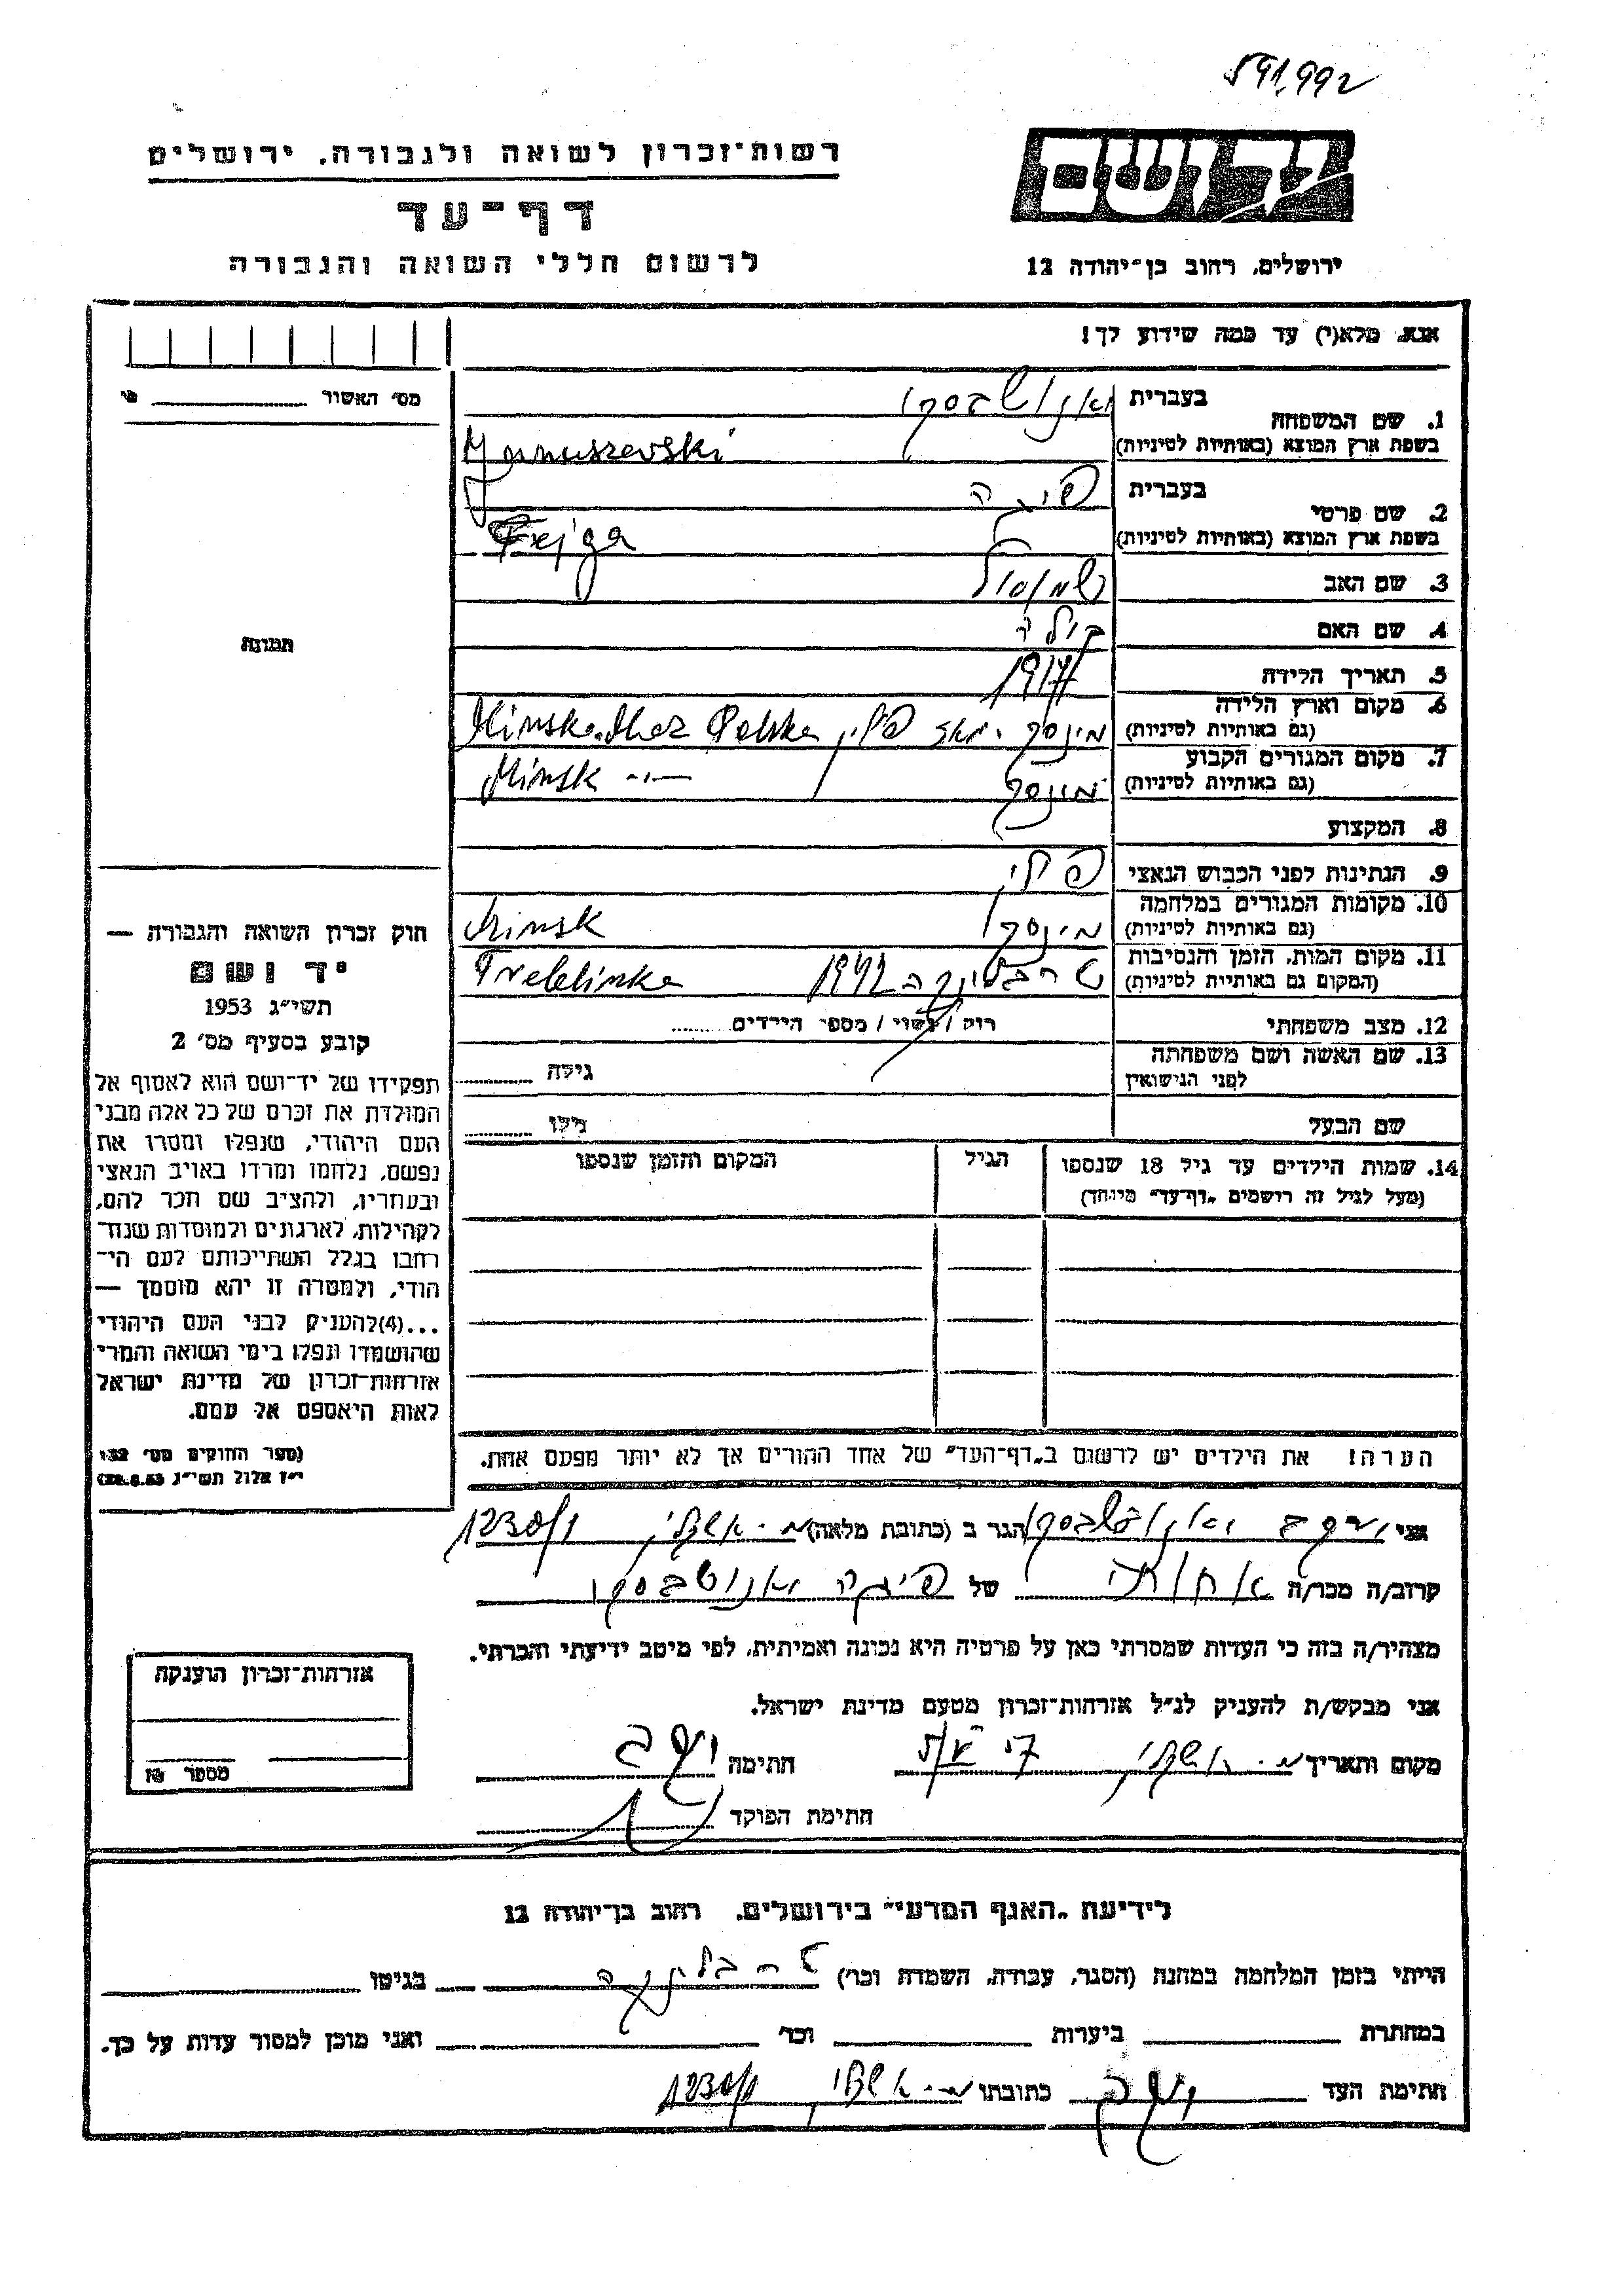 591.992
רשות־זכרון לשואה ולגבורה, ירושלים
יד ושם
דף־עד
לרשום חללי השואה והגבורה
ירושלים, רחוב בן־יהודה 12
אנא, מלא(י) עד כמה שידוע לך!
מס׳ האשור
1. שם המשפחה בעברית יאנושבסקי
בשפת ארץ המוצא (באותיות לטיניות) Januszevski
2. שם פרטי בעברית פיגה
בשפת ארץ המוצא (באותיות לטיניות) Fejga
3. שם האב
4. שם האם ביילה
5. תאריך הלידה
6. מקום וארץ הלידה
(גם באותיות לטיניות) מינסק פולין Polska
7. מקום המגורים הקבוע
(גם באותיות לטיניות) מינסק Minsk —〃—
8. המקצוע
9. הנתינות לפני הכבוש הנאצי פולין
10. מקומות המגורים במלחמה
(גם באותיות לטיניות) מינסק Minsk
11. מקום המות, הזמן והנסיבות
(המקום גם באותיות לטיניות) טרבלינקה 1942 Treblinka
12. מצב משפחתי רווק / נשוי / מספר הילדים
13. שם האשה ושם משפחתה
לפני הנישואין גילה
שם הבעל גילו
14. שמות הילדים עד גיל 18 שנספו הגיל המקום והזמן שנספו
(מעל לגיל זה רושמים „דף־עד״ מיוחד)
הערה! את הילדים יש לרשום ב„דף־העד״ של אחד ההורים אך לא יותר מפעם אחת.
תמונה
חוק זכרון השואה והגבורה —
יד ושם
תשי״ג 1953
קובע בסעיף מס׳ 2
תפקידו של יד־ושם הוא לאסוף אל
המולדת את זכרם של כל אלה מבני
העם היהודי, שנפלו ומסרו את
נפשם, נלחמו ומרדו באויב הנאצי
ובעוזריו, ולהציב שם וזכר להם,
לקהילות, לארגונים ולמוסדות שנח־
רבו בגלל השתייכותם לעם הי־
הודי, ולמטרה זו יהא מוסמך —
...(4)להעניק לבני העם היהודי
שהושמדו ונפלו בימי השואה והמרי
אזרחות־זכרון של מדינת ישראל
לאות היאספם אל עמם.
(ספר החוקים מס׳ 132
י״ז אלול תשי״ג 28.8.53)
אני יעקב יאנושבסקי הגר ב (כתובת מלאה) 1230/1
קרוב/ה מכר/ה של פיגה יאנושבסקי
מצהיר/ה בזה כי העדות שמסרתי כאן על פרטיה היא נכונה ואמיתית, לפי מיטב ידיעתי והכרתי.
אני מבקש/ת להעניק לנ״ל אזרחות־זכרון מטעם מדינת ישראל.
מקום ותאריך חתימה
חתימת הפוקד
אזרחות־זכרון הוענקה
מספר
לידיעת „האגף המדעי״ בירושלים, רחוב בן־יהודה 12
הייתי בזמן המלחמה במחנה (הסגר, עבודה, השמדה וכו׳) טרבלינקה בגיטו
במחתרת ביערות וכו׳ ואני מוכן למסור עדות על כך.
חתימת העד כתובתו 1230/1